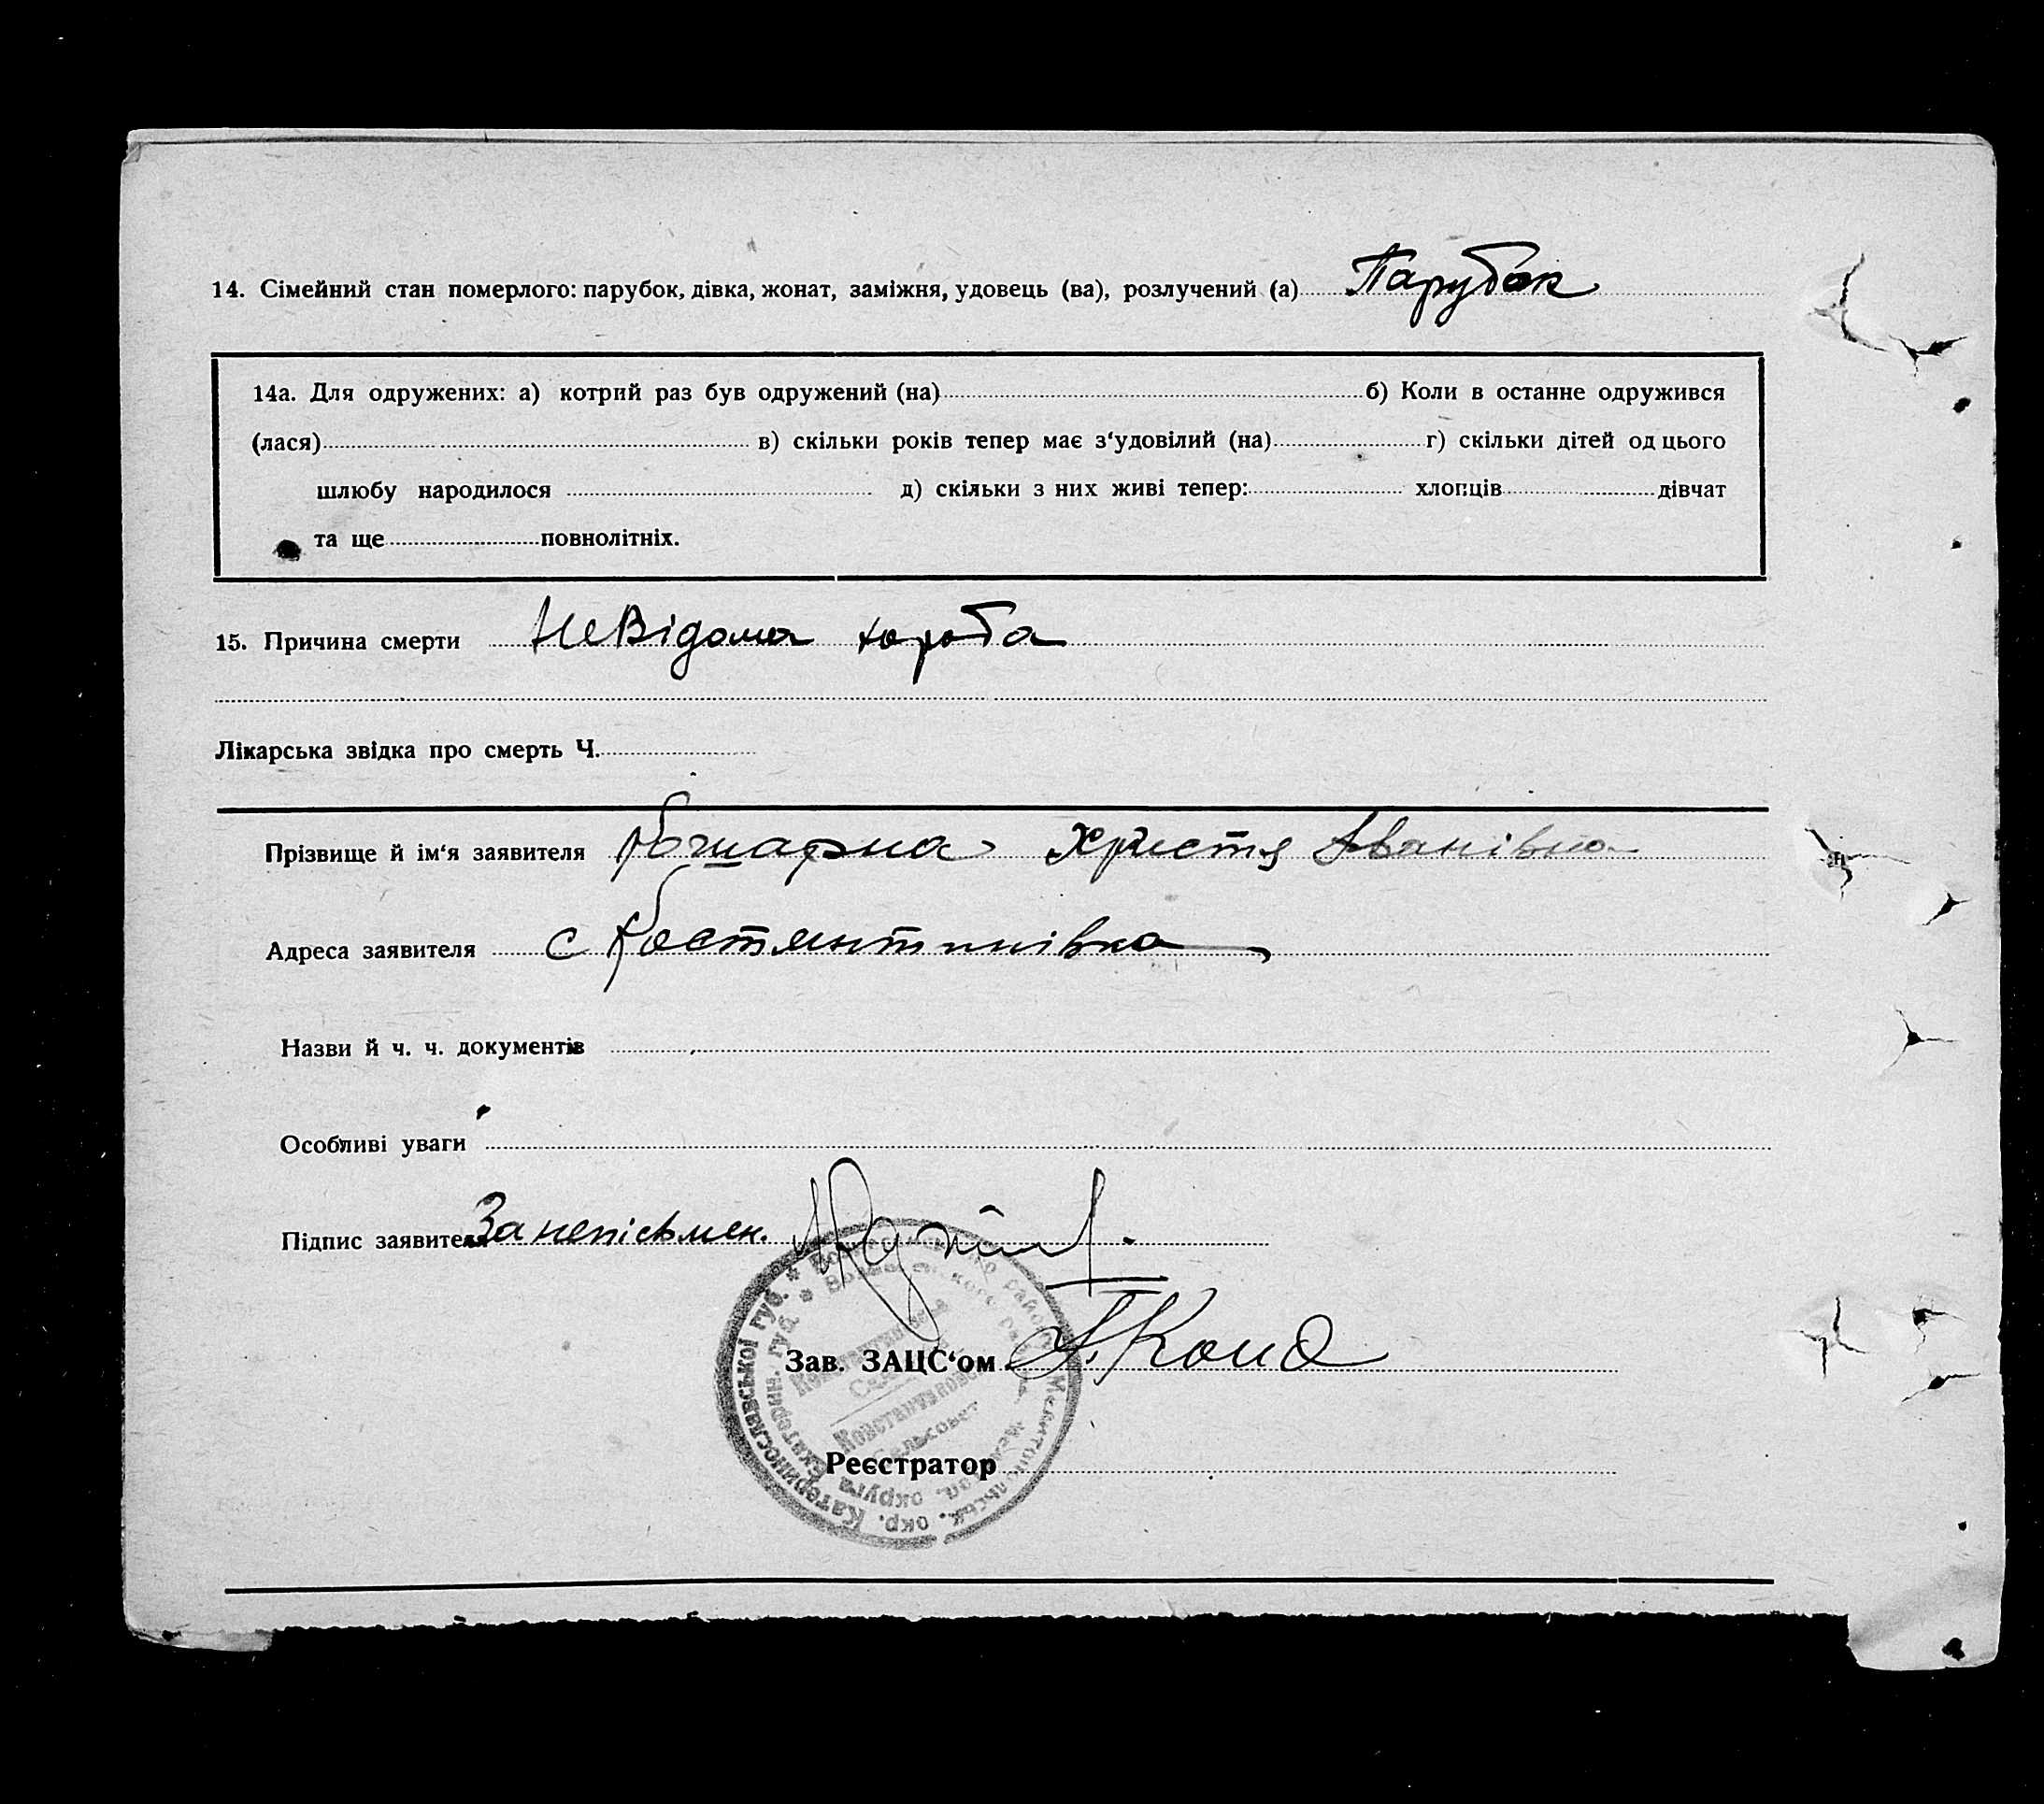 14. Сімейний стан померлого: парубок, дівка, жонат, заміжня, удовець (ва), розлучений (а) Парубок
14а. Для одружених: а) котрий раз був одружений (на) б) Коли в останне одружився
(лася) в) скільки років тепер має з‘удовілий (на) г) скільки дітей од цього
шлюбу народилося д) скільки з них живі тепер: хлопців дівчат
та ще повнолітніх.
15. Причина смерти Невідома хороба
Лікарська звідка про смерть Ч.
Прізвище й ім‘я заявителя Кошарна Христя Іванівна
Адреса заявителя с Костянтинівка
Назви й ч. ч. документів
Особливі уваги
Підпис заявителя За непісьмен.
Зав. ЗАЦС‘ом
Реєстратор
Катеринославської губ. * району Мелитопільськ. окр.
Екатерин. губ. * округа
Сельсовет